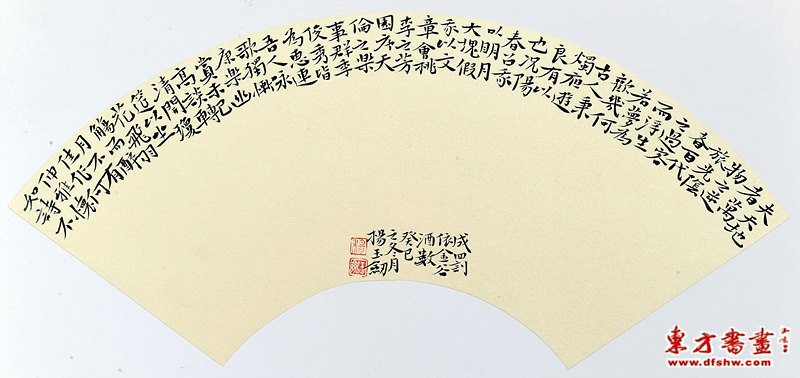 夫天地
者萬
物之逆
旅光陰
者百代
之過客
而浮生
若夢為
歡幾何
古人秉
燭夜遊
良有以
也況陽
春召我
以明月
大塊假
我以文
章會桃
李之芳
園序天
倫之樂
事群季
俊秀皆
為惠連
吾人詠
歌獨慚
康樂幽
賞未已
高談轉
清開瓊
筵以坐
花飛羽
觴而醉
月不有
佳作何
伸雅懷
如詩不
成罰
依金谷
酒數
癸巳
之冬月
楊玉
東方書畫
www.dfshw.com